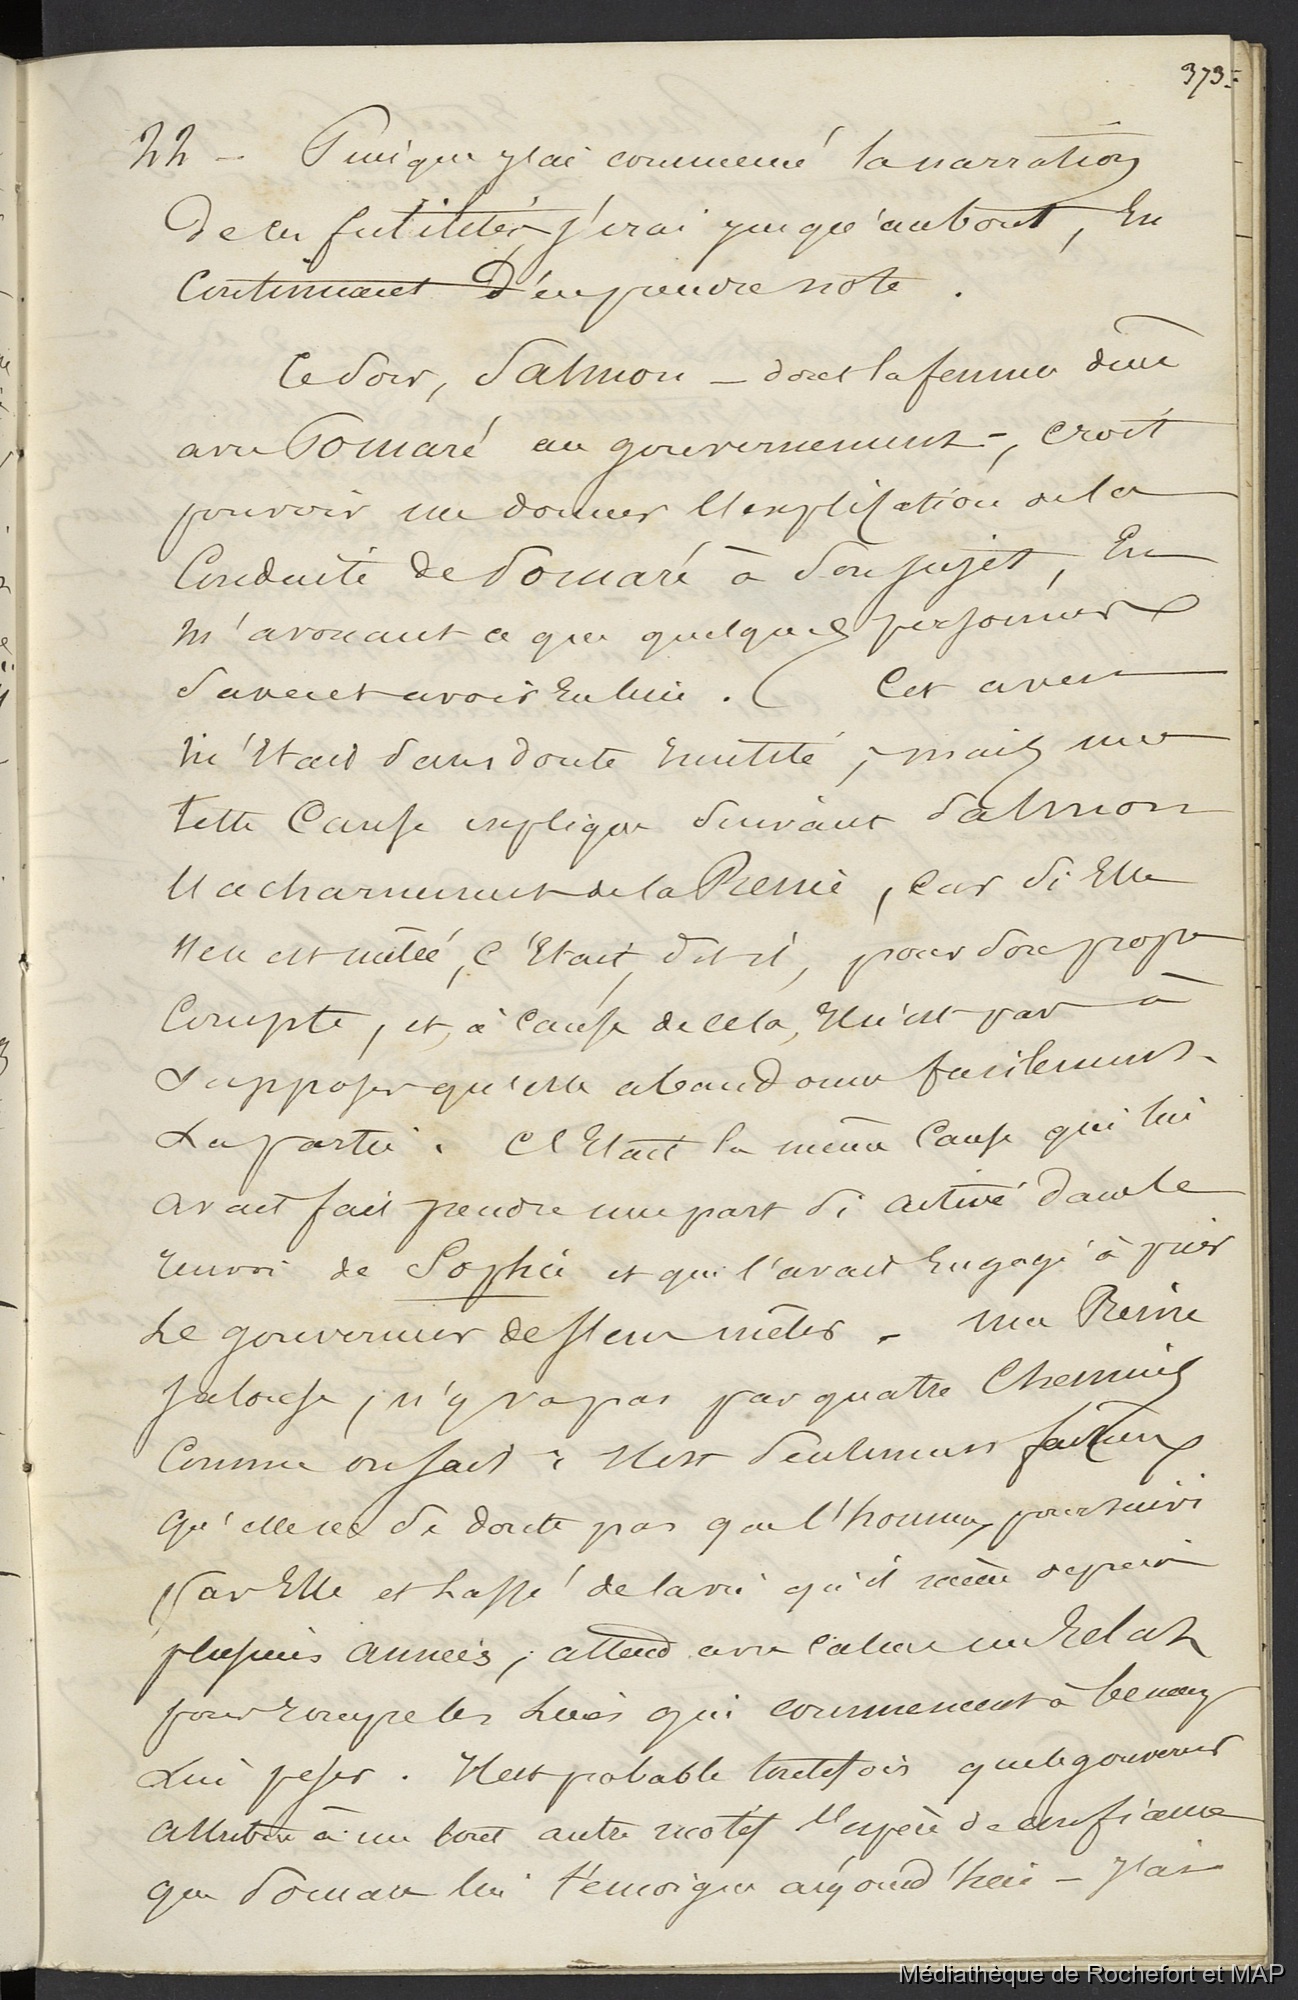 373.
22 — Puisque j'ai commencé la narration
de ces futilités, j'irai jusqu'au bout, en
continuant d'en prendre note.
Ce soir, Salmon — dont la femme dîne
avec Pomaré au gouvernement —, croit
pouvoir me donner l'explication de la
conduite de Pomaré à son sujet, en
m'avouant ce que quelques personnes
savent avoir eu lieu. Cet aveu
m'était sans doute inutile, mais une
telle cause explique suivant Salmon
l'acharnement de la Reine, car si Elle
s'en est mêlée, c'était, dit-il, pour son propre
compte, et, à cause de cela, il n'est pas à
supposer qu'elle abandonne facilement
la partie. C'était la même cause qui lui
avait fait prendre une part si active dans le
renvoi de Sophie et qui l'avait engagé à prier
le gouverneur de s'en mêler. — Une Reine
jalouse, n'y va pas par quatre chemins
comme on sait : il est seulement fâcheux
qu'elle ne se doute pas que l'homme, poursuivi
par Elle et lassé de la vie qu'il mène depuis
plusieurs années, attend avec calme un éclat
pour rompre les liens qui commencent à
lui peser. Il est probable toutefois que le gouverneur
attribue à un tout autre motif l'espèce de confiance
que Pomaré lui témoigne aujourd'hui — J'ai
Médiathèque de Rochefort et MAP